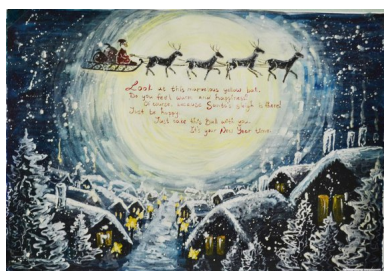 Look at this marvelous yellow ball.
Do you feel warm and happiness?
Of course, because Santa's sleigh is there!
Just be happy.
Just take this Ball with you.
It's your New Year